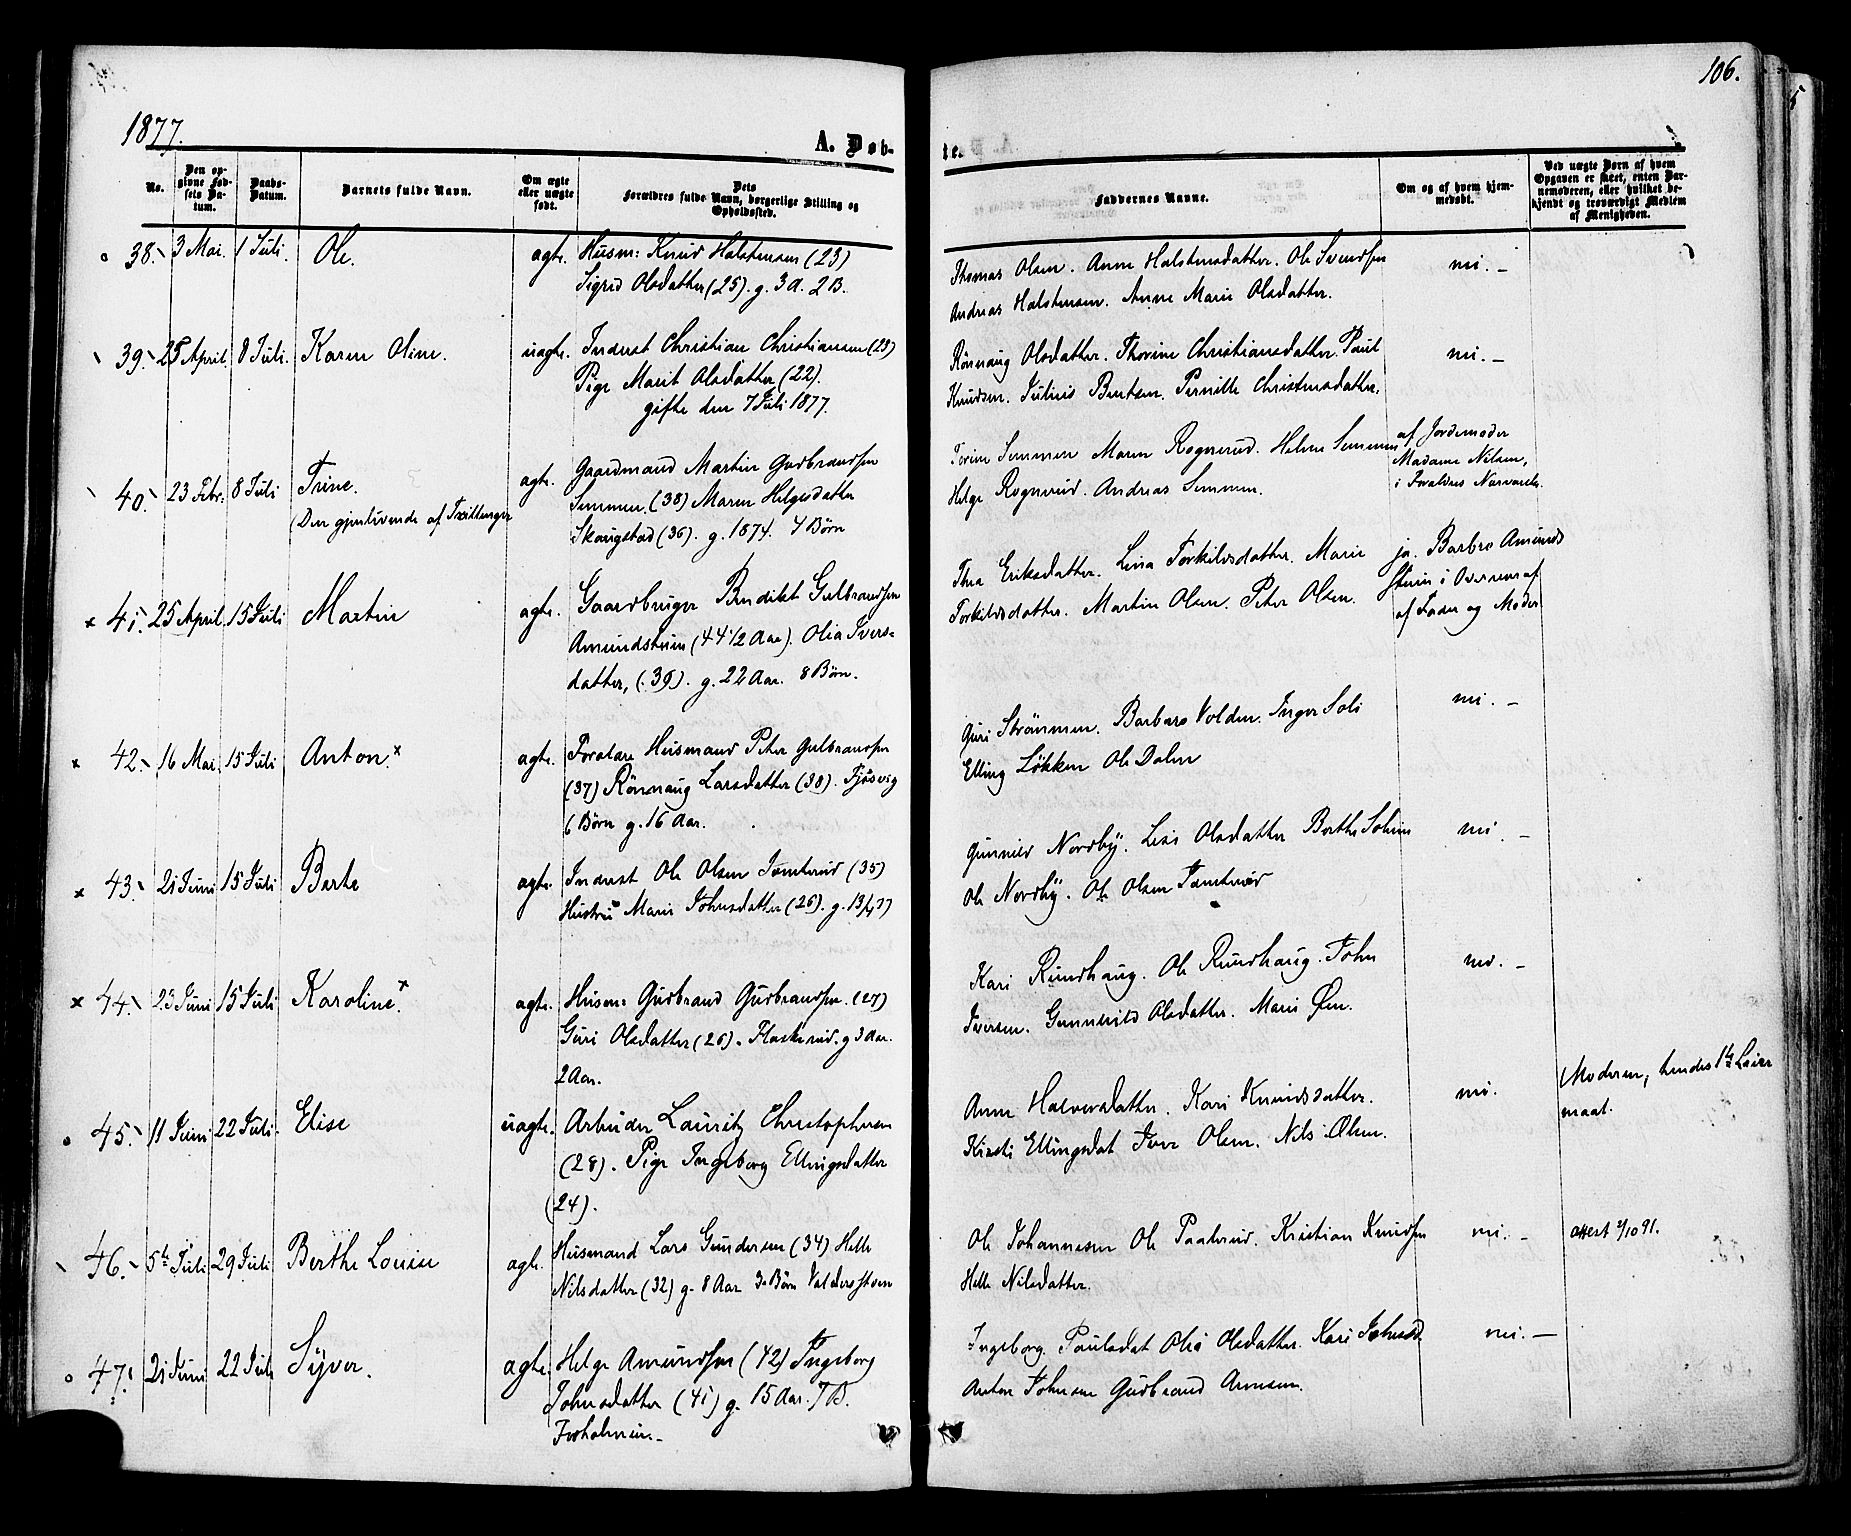 106.
1877.
A. Døb-
te.
No.
Den op-
givne Fød-
sels Da-
tum.
Daabs-
Datum.
Barnets fulde Navn.
Om ægte
eller uægte
født.
Dets
Forældres fulde Navn, borgerlige Stilling og
Opholdssted.
Faddernes Navne.
Om og af hvem hjem-
medøbt.
Ved uægte Børn af hvem
Opgaven er skeet, enten Bar-
nemoderen, eller hvilket be-
kjendt og troværdigt Medlem
af Menigheden.
38. 3 Mai. 1 Juli. Ole. ægte. Husm: Knud Halstensen (23)
Sigrid Olsdatter (25). g. 3 A. 2 B.
Thomas Olsen. Anne Halstensdatter. Ole Svendsen
Andreas Halstensen. Anne Marie Olsdatter.
nei. -
39. 25 April. 8 Juli. Karen Oline. uægte. Inderst Christian Christiansen (23)
Pige Marit Olsdatter (22).
gifte den 7 Juli 1877.
Rønnaug Olsdatter. Thorine Christiansdatter. Paul
Knudsen. Julius Bentsen. Pernille Christensdatter.
nei. -
40. 23 Febr. 8 Juli Trine. ægte. Gaardmand Martin Gudbrandsen
(Den gjenlevende af Tvillinger
Semmen. (38) Maren Helgesdatter
Skougstad (36). g. 1874. 4 Børn
Torine Semmen Maren Rognerud. Helene Semmen
Helge Rognerud. Andreas Semmen.
af Jordemoder
Madame Nilsen,
i Foraldres Nærværelse.
41. 25 April. 15 Juli Martin ægte. Gaardbruger Bendikt Gulbrandsen
Amundstuen (44 1/2 Aar). Olia Ivers=
datter, (39). g. 22 Aar. 8 Børn.
Thea Eriksdatter. Lina Torkildsdatter. Marie
Torkildsdatter. Martin Olsen. Peter Olsen.
ja. Barbro Amunds
stuen i Overvær af
af Fader og Moder
42. 16 Mai. 15 Juli Anton. x ægte. Husmand Peter Gulbrandsen
(37) Rønnaug Larsdatter (38). Fjøsvig
6 Børn g. 16 Aar.
Guri Strømmen. Barbaro Volden. Inger Soli
Elling Løkken Ole Dalen
nei. -
43. 21 Juni 15 Juli Berte ægte. Inderst Ole Olsen Tomterud (35)
Hustru Marie Johnsdatter (26). g. 13/4 77
Gunnild Nordby. Lisi Olsdatter Berthe Solien
Ole Nordby. Ole Olsen Tomterud
nei. -
44. 23 Juni 15 Juli Karoline. x ægte. Husm: Gudbrand Gudbrandsen. (27)
Guri Olsdatter (26). Flaskerud. g 3 Aar.
2 Aar.
Kari Rundhaug. Ole Rundhaug. John
Iversen. Gunnhild Olsdatter. Marie Øen.
nei. -
45. 11 Juni 22 Juli. Elise uægte. Arbeider Lauritz Christophersen
(28). Pige Ingeborg Ellingsdatter
(24).
Anne Halvorsdatter. Kari Knudsdatter.
Kirsti Ellingsdat Iver Olsen. Nils Olsen.
nei.
Moderen, hendes 1te Leier
maal.
46. 5te Juli 29 Juli Berthe Louise ægte. Husmand Lars Gundersen (34) Helle
Nilsdatter (32) g. 8 Aar 3 Børn
Ole Johannesen Ole Paalerud. Kristian Knudsen
Helle Nilsdatter.
nei. -
attest 2/10 91.
47. 21 Juni 22 Juli Syver. ægte. Helge Amundsen (42) Ingeborg
Johnsdatter (41) g. 15 Aar. 7 B.
Ingeborg Paulsdat Olia Olsdatter. Kari Johnsd.
Anton Johnsen Gudbrand Arnesen.
nei. -